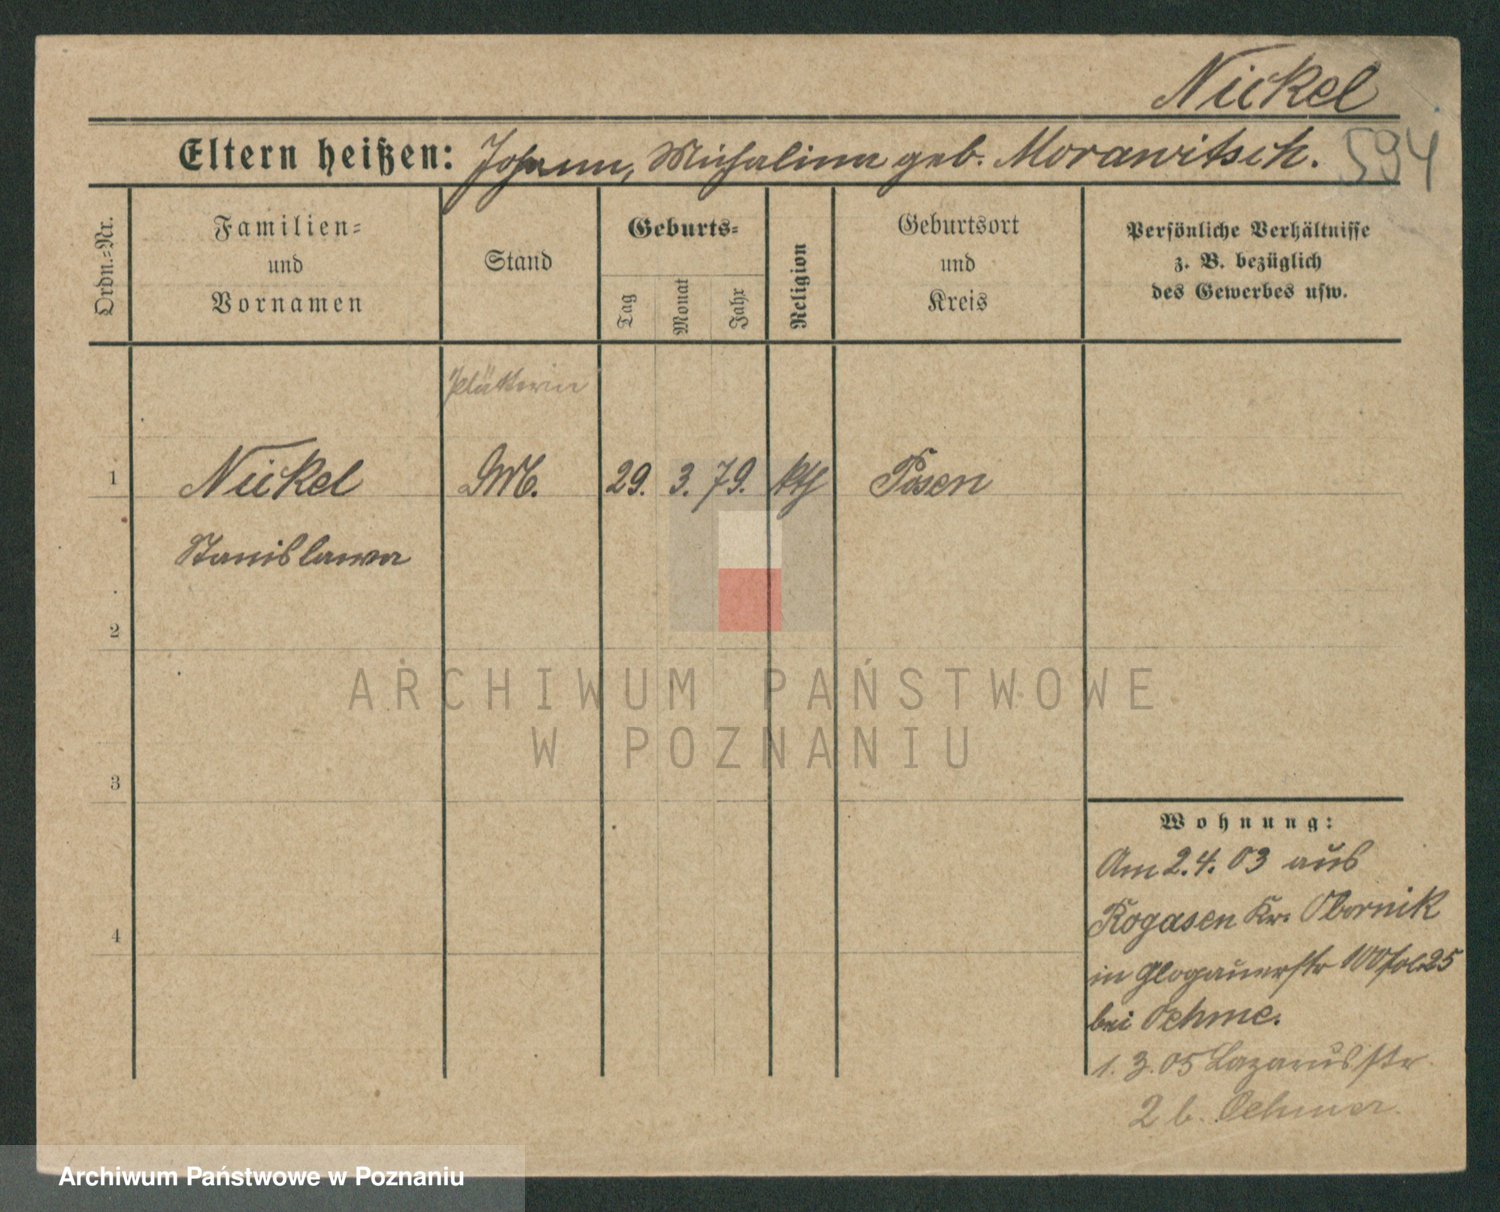 Nickel
594
Eltern heißen: Johann, Michalina geb. Morawitsch.
Ordn.=Nr.
Familien= und Vornamen
Stand
Geburts=
Tag
Monat
Jahr
Religion
Geburtsort und Kreis
Persönliche Verhältnisse z. B. bezüglich des Gewerbes usw.
Plätterin
1 Nickel 29. 3. 79. kth Posen
Stanislawa
2
3
4
Wohnung:
Am 2.4.03 aus
Rogasen Kr. Obornik
in Glogauerstr 100 25
bei Oehme.
1.3.05 Lazarusstr
2 b. Oehme
ARCHIWUM PAŃSTWOWE
W POZNANIU
Archiwum Państwowe w Poznaniu